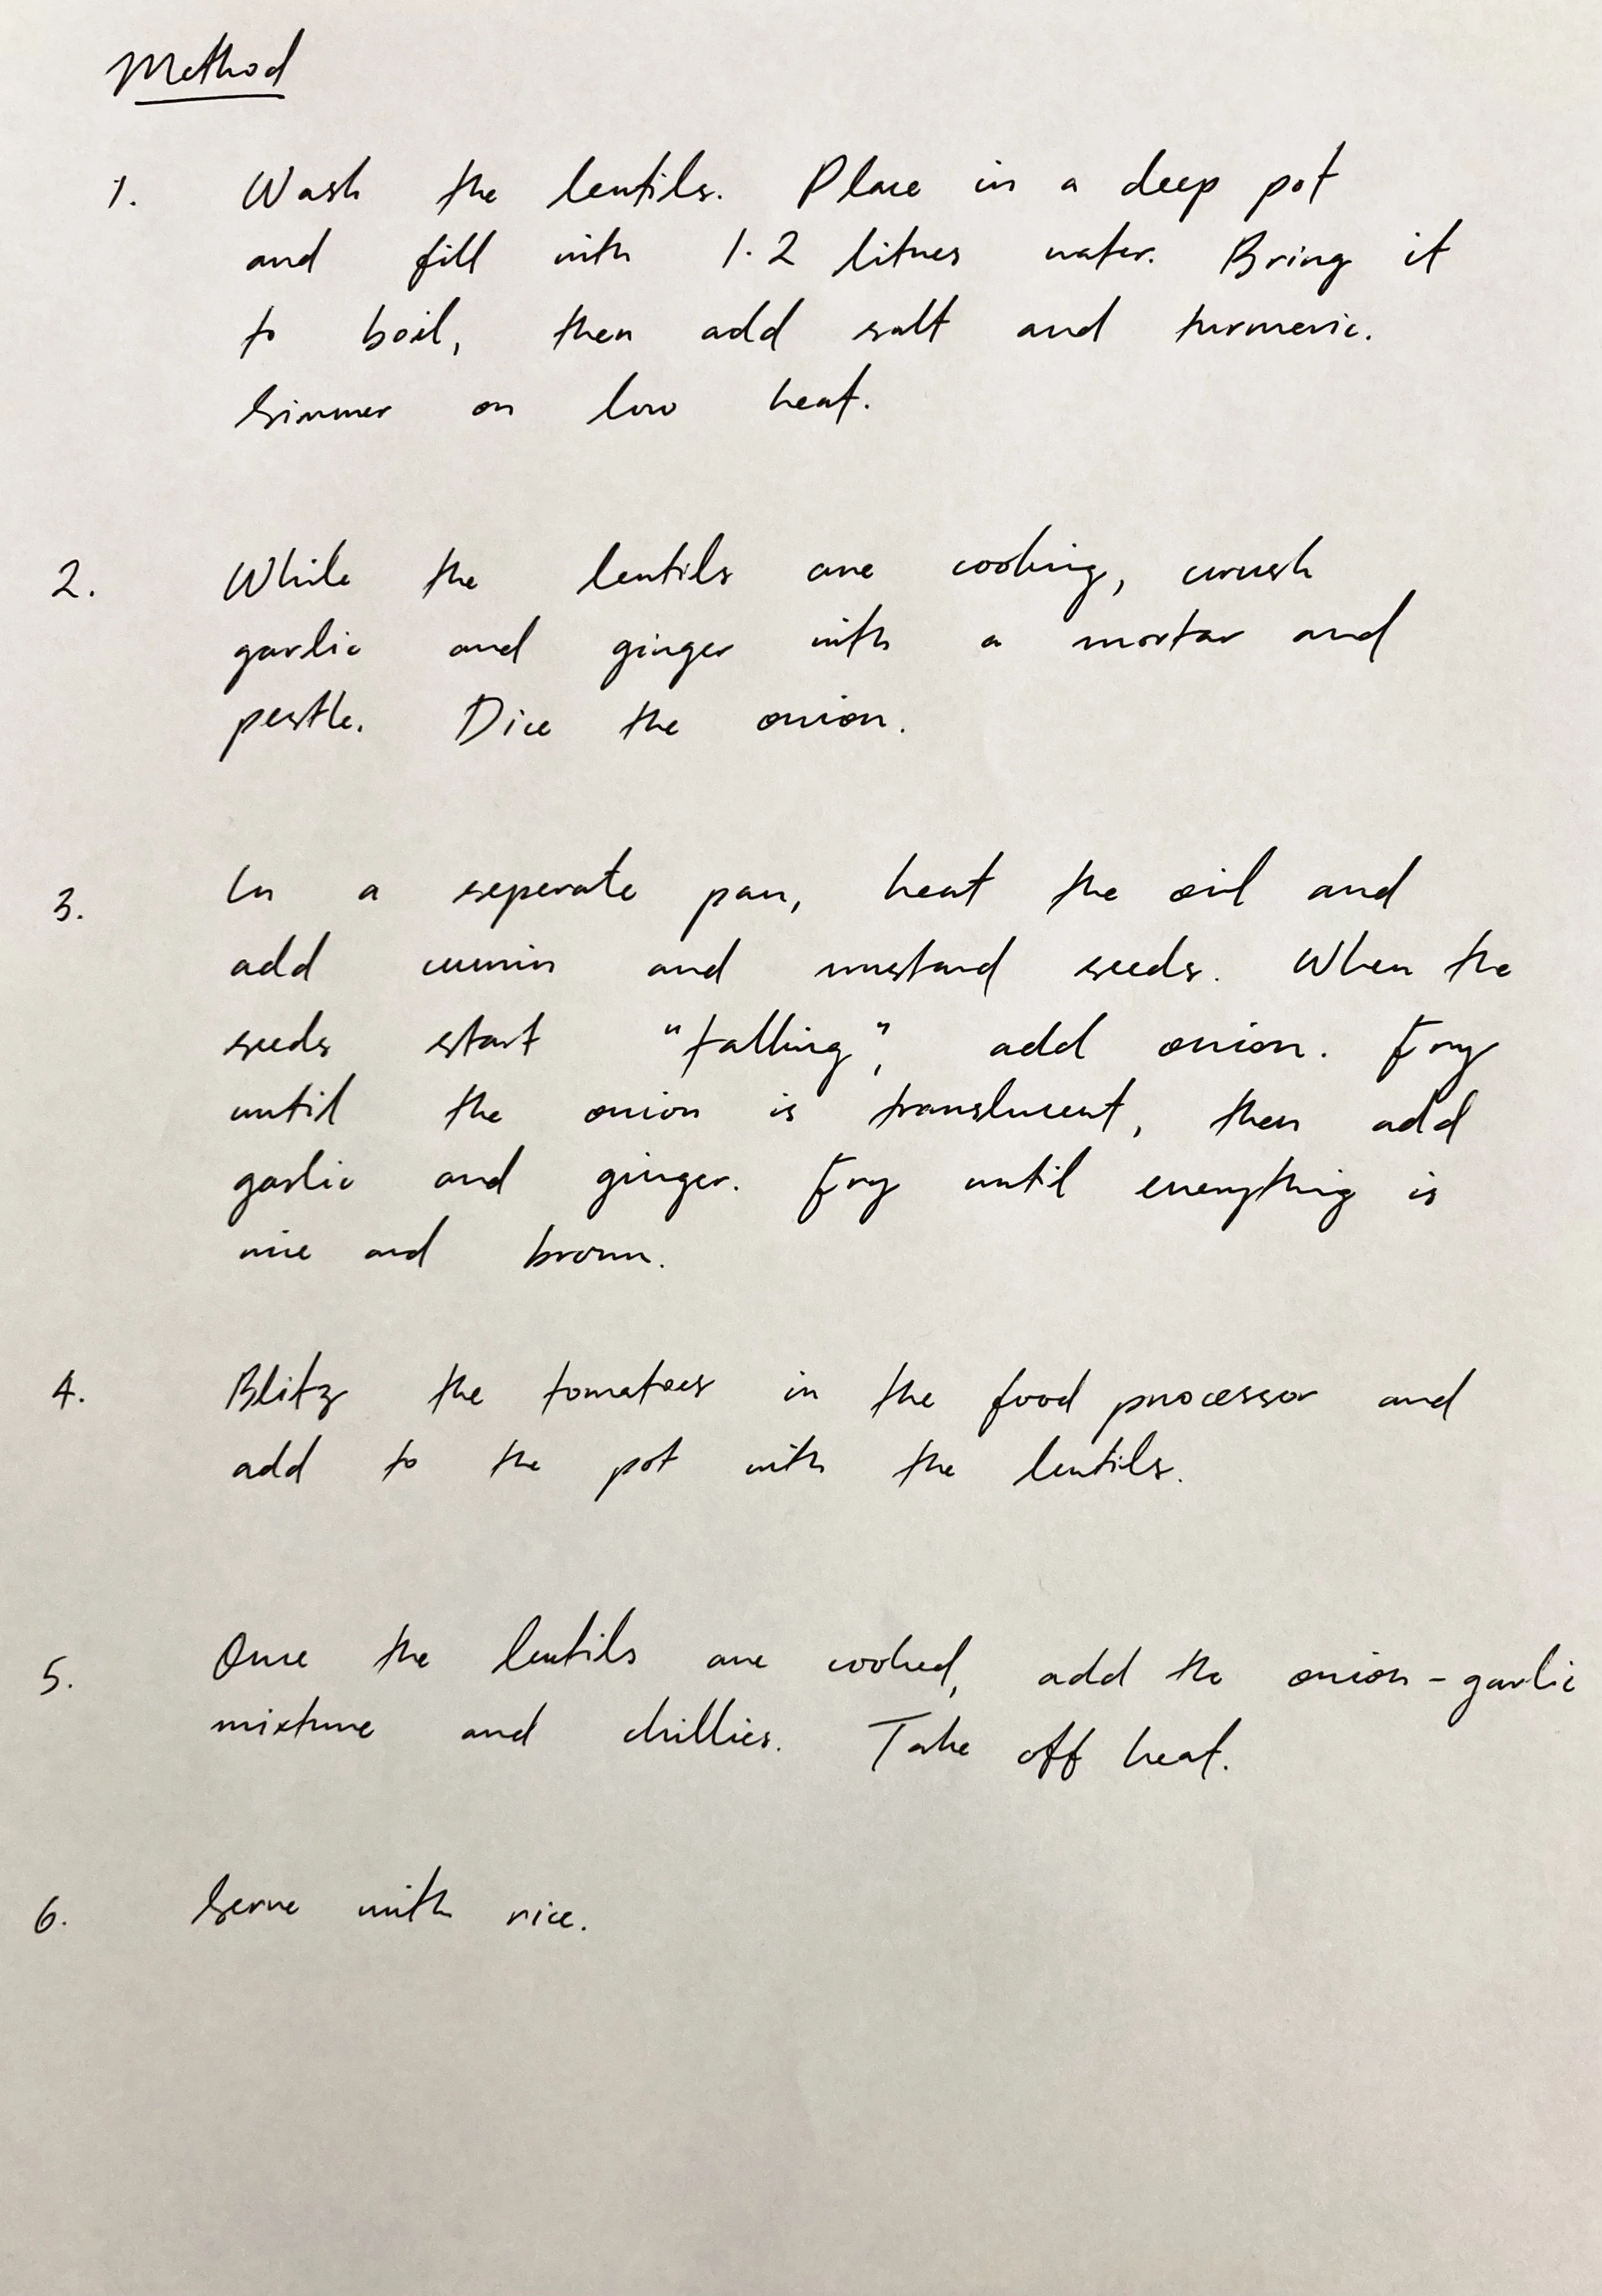 Method
1. Wash the lentils. Place in a deep pot
and fill with 1.2 litres water. Bring it
to boil, then add salt and turmeric.
Simmer on low heat.
2. While the lentils are cooking, crush
garlic and ginger with a mortar and
pestle. Dice the onion.
3. In a seperate pan, heat the oil and
add cumin and mustard seeds. When the
seeds start "talking", add onion. Fry
until the onion is translucent, then add
garlic and ginger. Fry until everything is
nice and brown.
4. Blitz the tomatoes in the food processor and
add to the pot with the lentils.
5. Once the lentils are cooked, add the onion-garlic
mixture and chillies. Take off heat.
6. Serve with rice.